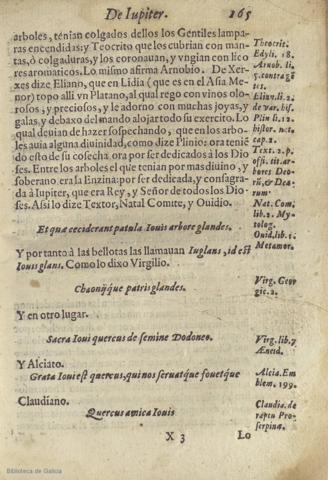 De Iupiter. 165
arboles, tenian colgados dellos los Gentiles lampa-
ras encendidas: y Teocrito que los cubrian con man-
tas, ò colgaduras, y los coronauan, y vngian con lico
res aromaticos. Lo mismo afirma Arnobio. De Xer-
xes dize Eliano, que en Lidia (que es en el Asia Me-
nor) topo alli vn Platano, al qual rego con vinos olo-
rosos, y preciosos, y le adorno con muchas joyas, y
galas, y debaxo del mando alojar todo su exercito. Lo
qual deuian de hazer sospechando, que en los arbo-
les auia alguna diuinidad, como dize Plinio: ora teniē
do esto de su cosecha, ora por ser dedicados a los Dio
ses. Entre los arboles el que tenian por mas diuino, y
soberano era la Enzina: por ser dedicada, y consagra-
da à Iupiter, que era Rey, y Señor de todos los Dio-
ses. Assi lo dize Textor, Natal Comite, y Ouidio.
Et quæ ceciderant patula Iouis arbore glandes.
Y por tanto à las bellotas las llamauan Iuglans, id est
Iouis glans. Como lo dixo Virgilio.
Chaonijque patris glandes.
Y en otro lugar.
Sacra Ioui quercus de semine Dodoneo.
Y Alciato.
Grata Ioui est quercus, qui nos seruatque fouetque
Claudiano.
Quercus amica Iouis
X 3 Lo
Theocrit.
Edyli. 18.
Arnob. li.
5. contra gē
tis.
Elian. li. 2.
de var. hist.
Plin li. 12.
histor. nat.
cap. 2.
Text. 2. p.
offi. tit. ar-
bores Deo-
rū, & Dea-
rum.
Nat. Com.
lib. 2. My-
tolog.
Ouid. lib. 1.
Metamor.
Virg. Geor
gic. 2.
Virg. lib. 7
Æneid.
Alcia. Em
blem. 199.
Claudia. de
raptu Pro-
serpinæ.
Biblioteca de Galicia